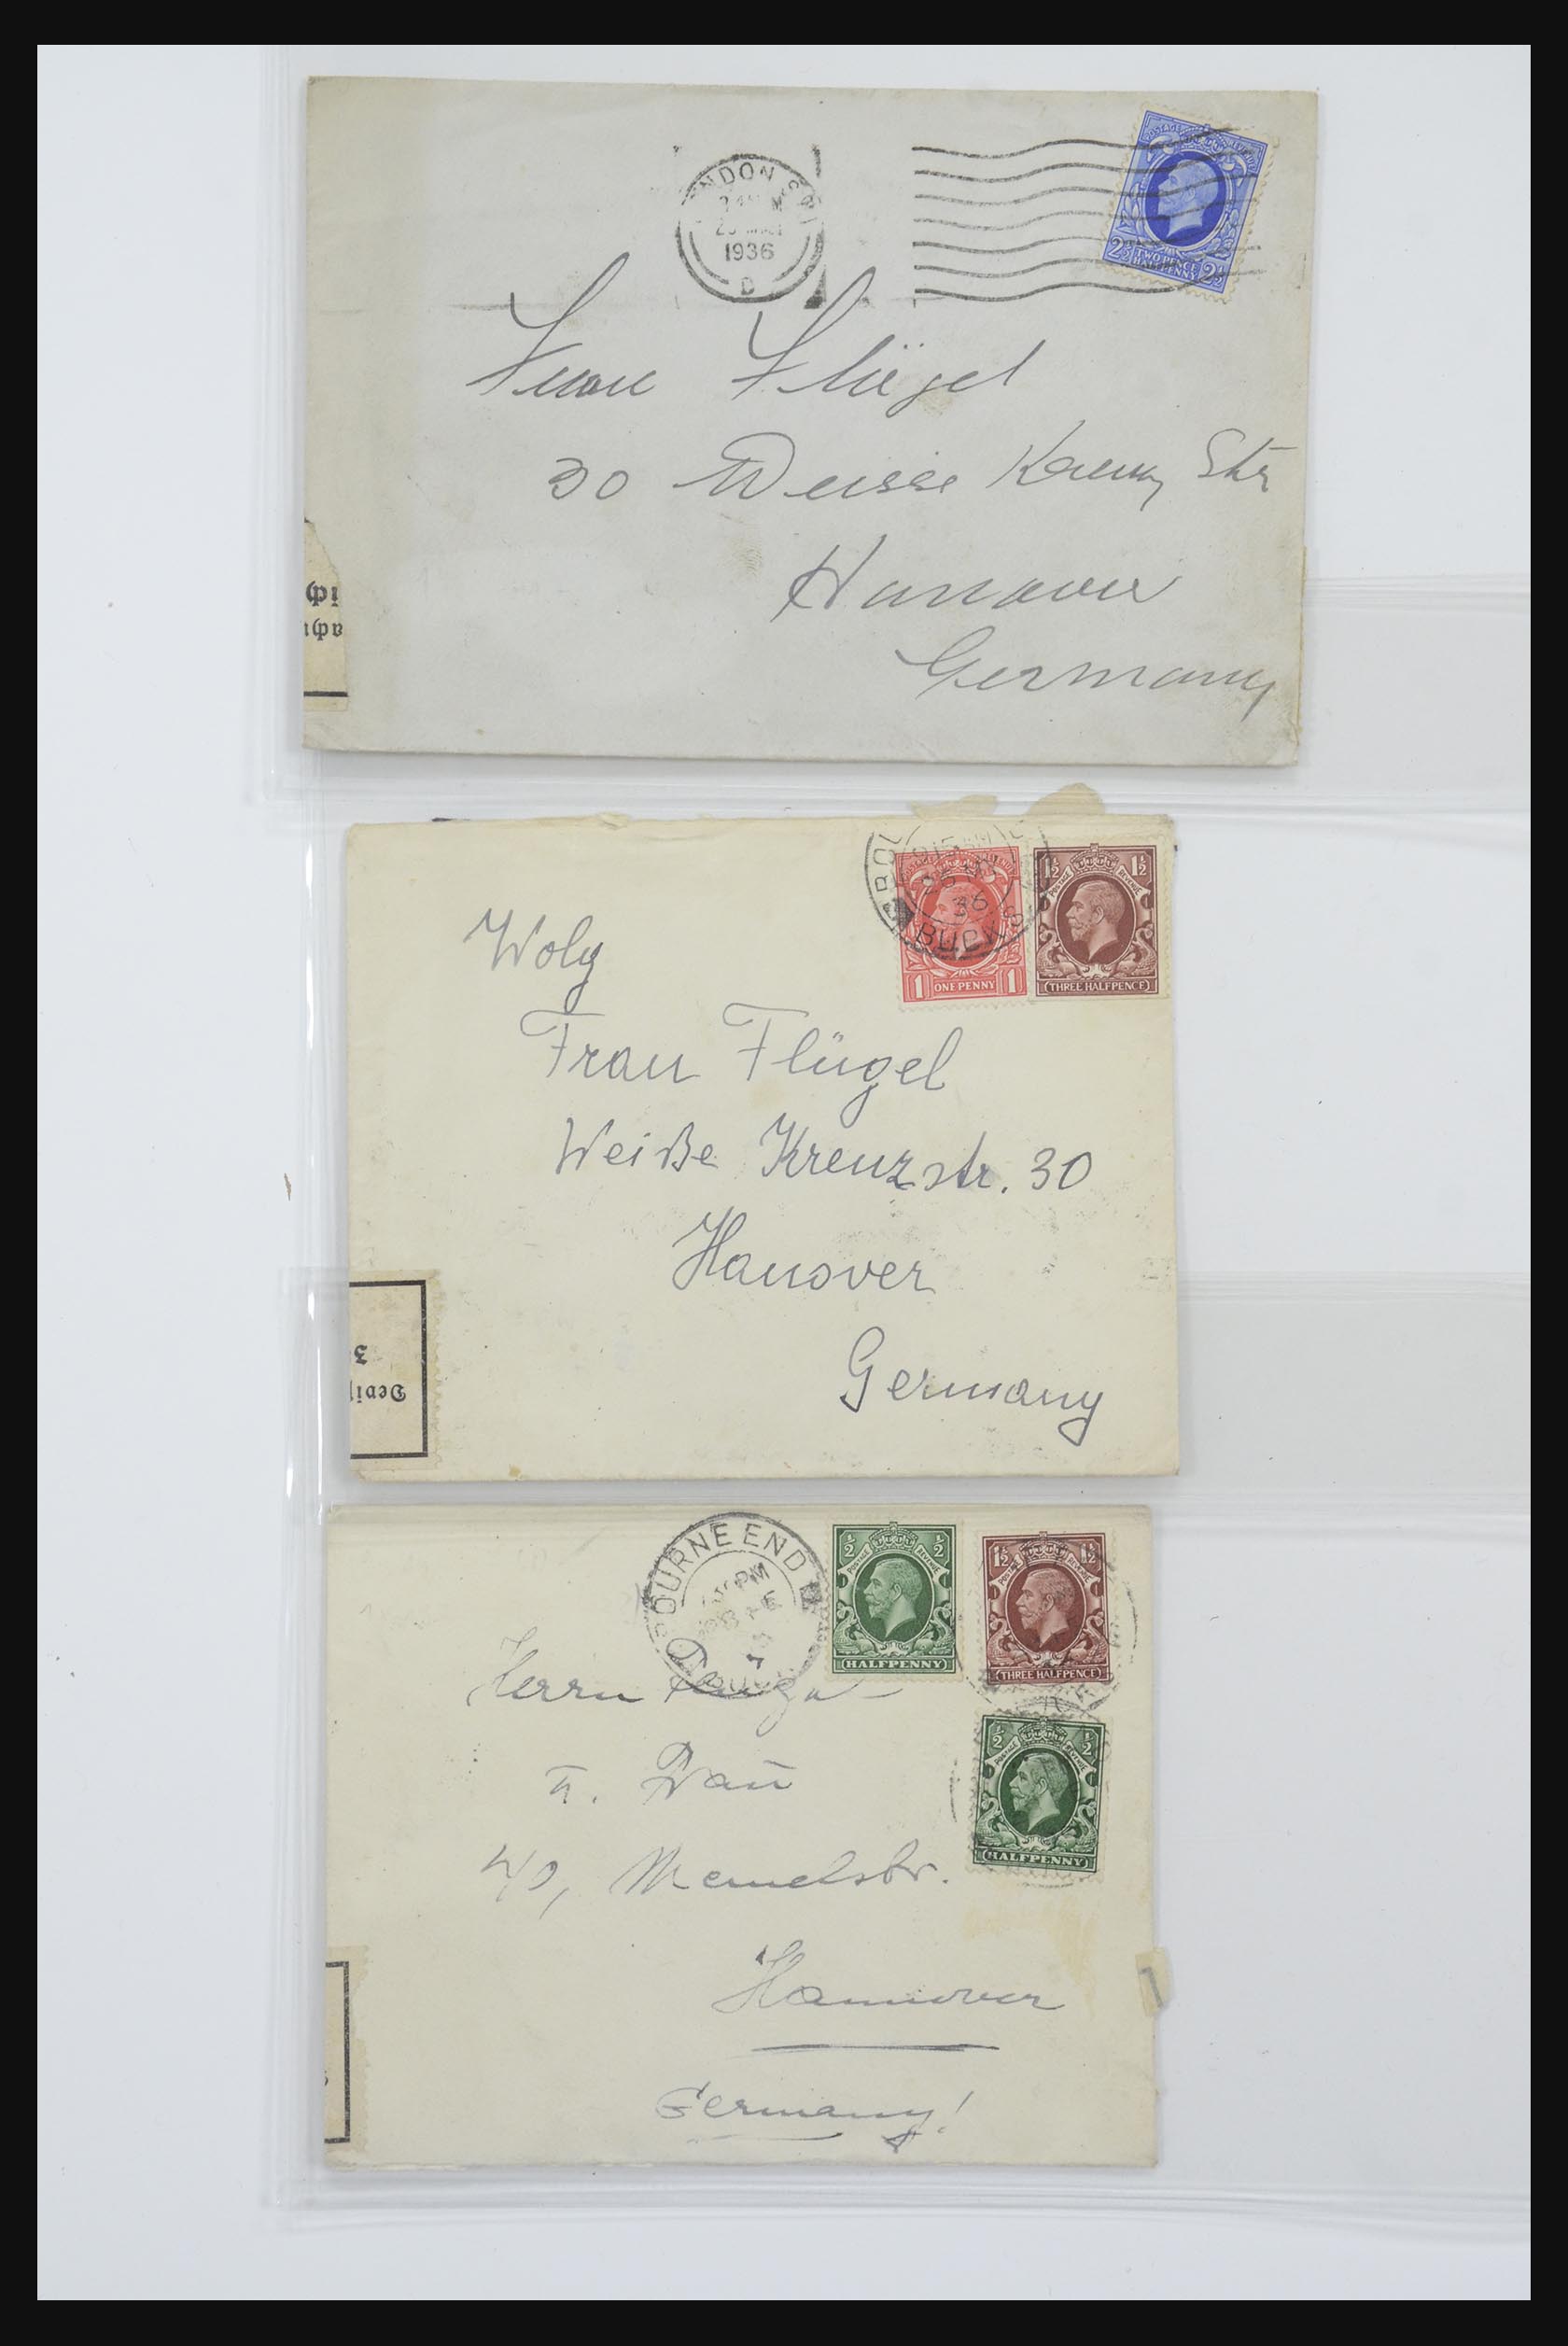 LONDON S.W.1
1936
D
POSTAGE REVENUE
2½ TWO PENCE HALFPENNY 2½
Frau Flügel
30 Weisse Kreuz Str
Hanover
Germany
9 15 AM
25
36
BUCKS
1 ONE PENNY 1
1½ 1½
POSTAGE REVENUE
(THREE HALFPENCE)
Wolg
Frau Flügel
Weiße Kreuzstr. 30
Hanover
Germany
Devis
3
BOURNE END
PM
½ ½
POSTAGE REVENUE
(HALFPENNY)
1½ 1½
POSTAGE REVENUE
(THREE HALFPENCE)
½ ½
POSTAGE REVENUE
(HALFPENNY)
Herrn
u. Frau
40, Memelstr.
Hannover
Germany!